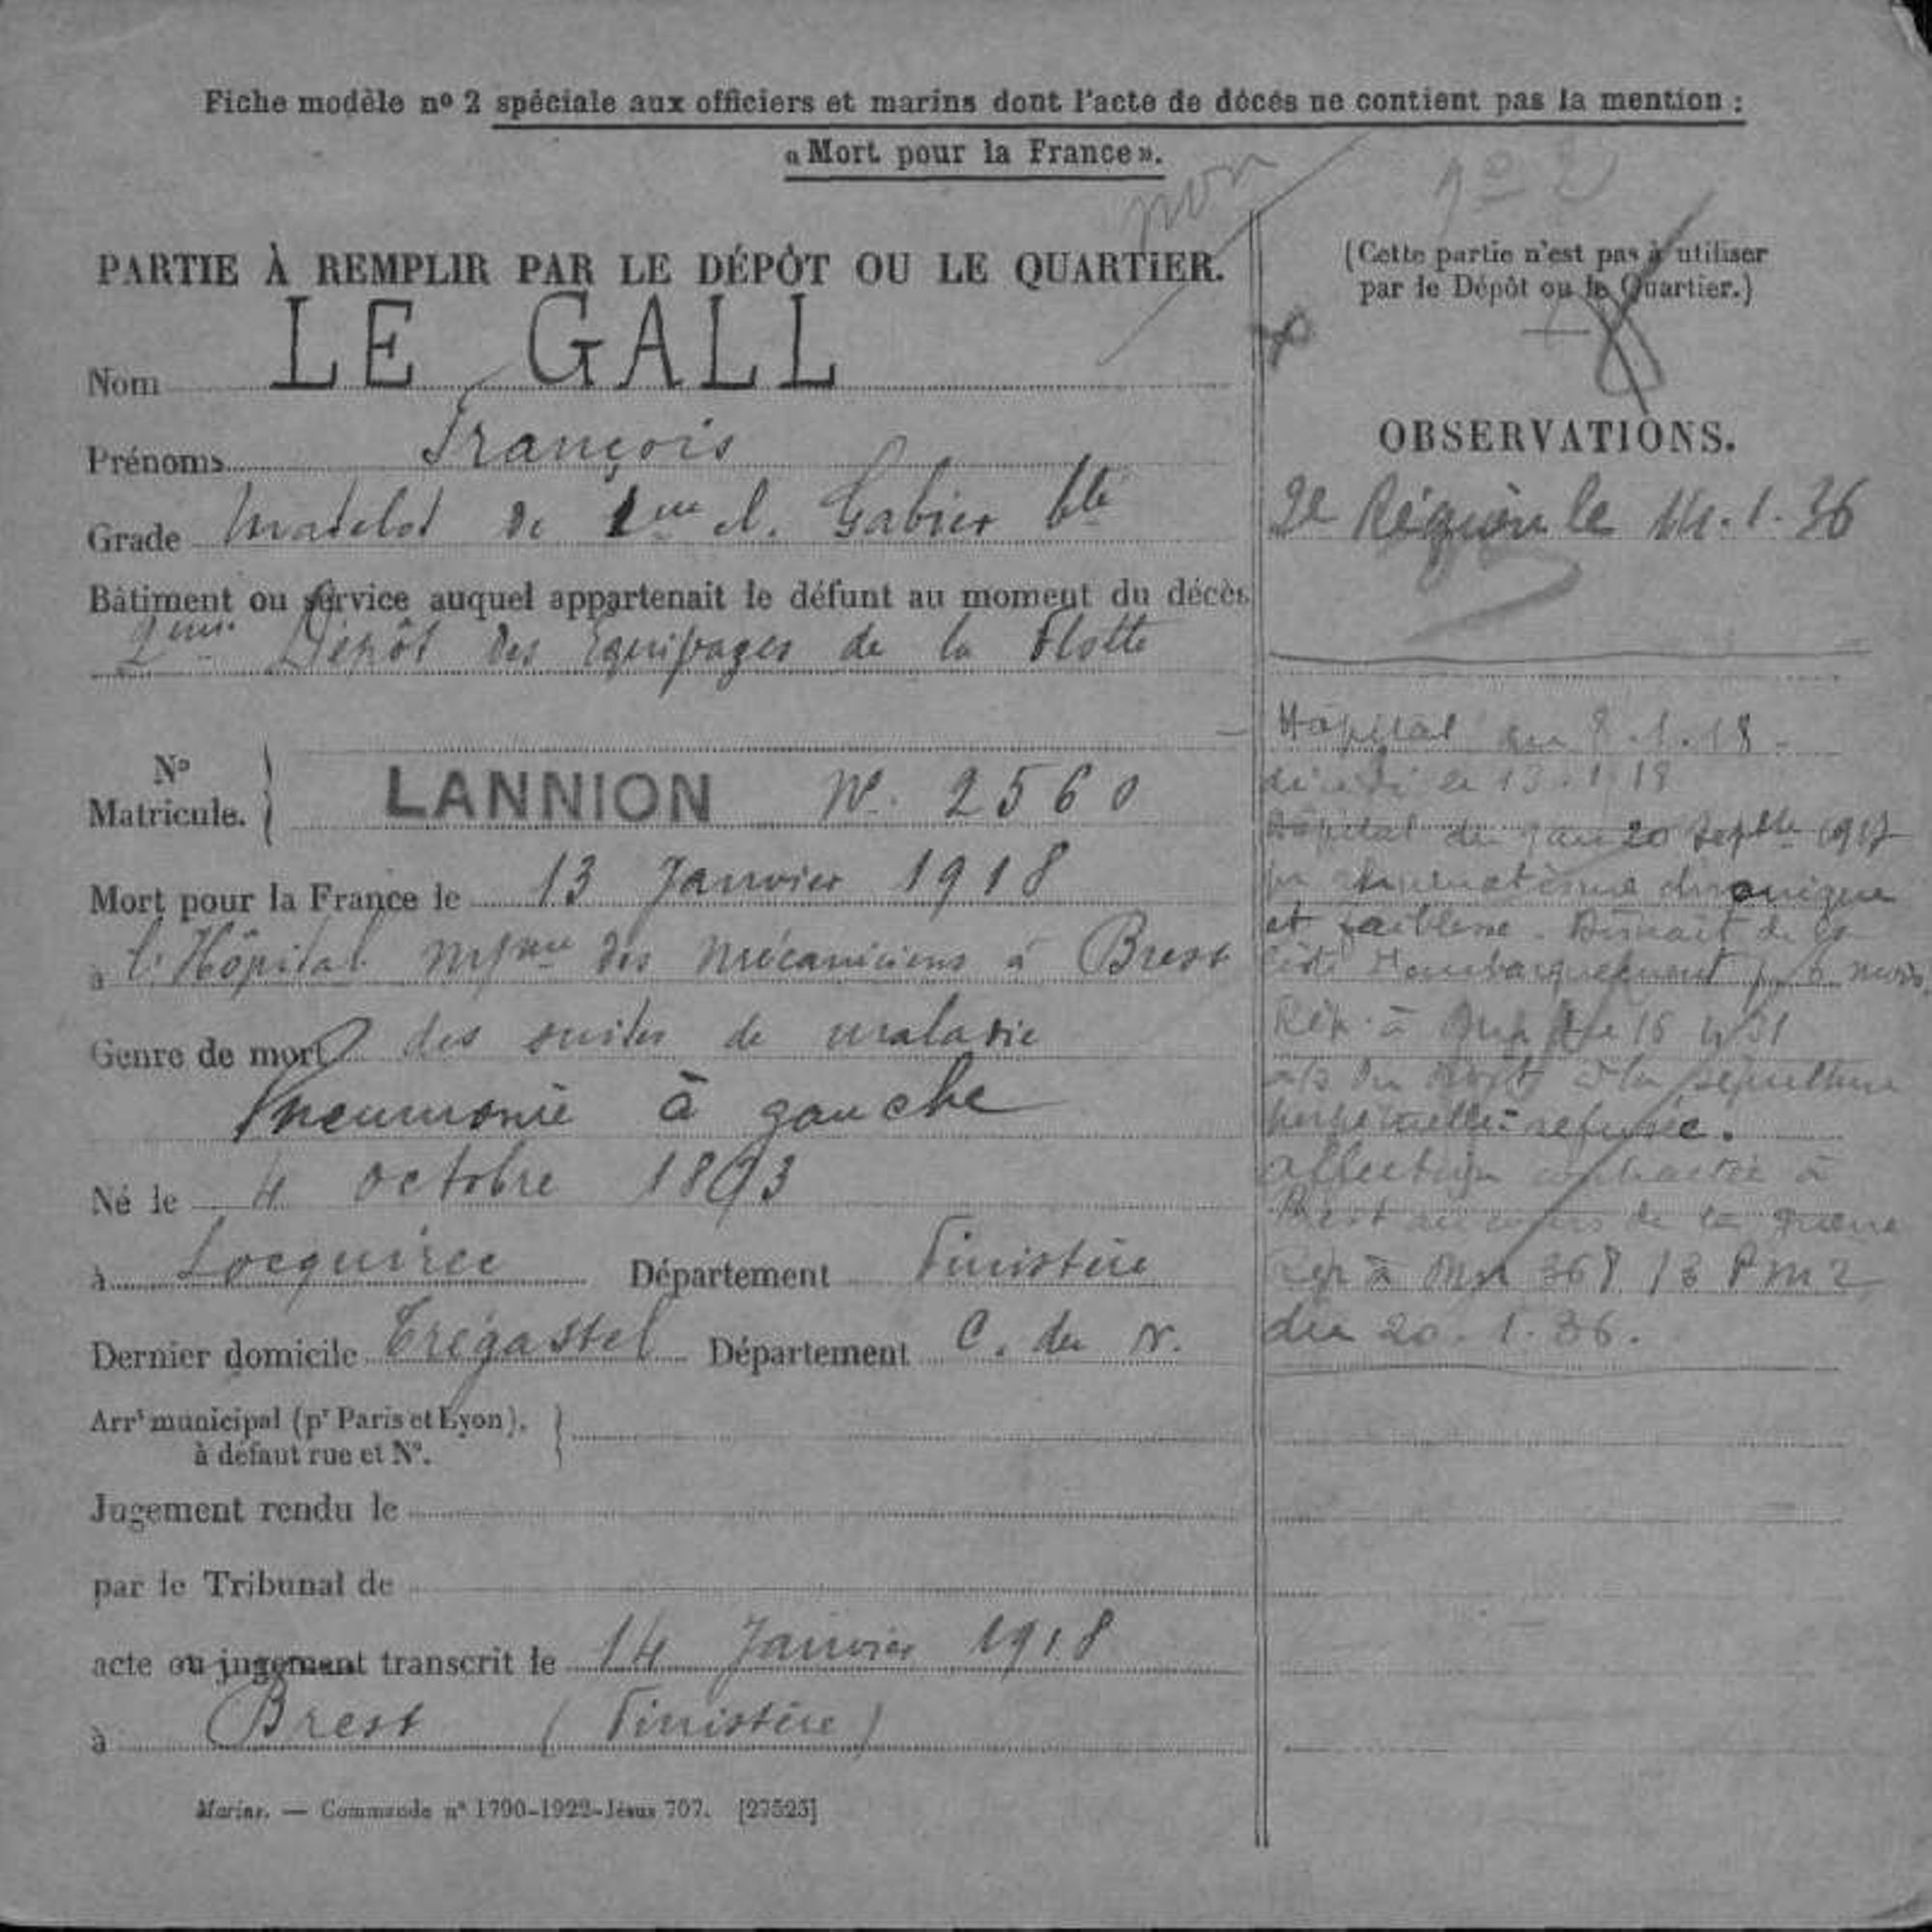 Fiche modèle nº 2 spéciale aux officiers et marins dont l'acte de décès ne contient pas la mention :
« Mort pour la France ».
non
nº 2
PARTIE À REMPLIR PAR LE DÉPÔT OU LE QUARTIER.
Nom LE GALL
Prénoms François
Grade Matelot de Gabier
Bâtiment ou service auquel appartenait le défunt au moment du décès
2ème Dépôt des Equipages de la Flotte
Nº Matricule. LANNION Nº 2560
Mort pour la France le 13 Janvier 1918
à l'Hôpital des Mécaniciens à Brest
Genre de mort des suites de maladie
Pneumonie à gauche
Né le 4 octobre 1893
à Locquirec Département Finistère
Dernier domicile Trégastel Département C. du N.
Arrt municipal (pr Paris et Lyon),
à défaut rue et Nº.
Jugement rendu le
par le Tribunal de
acte ou jugement transcrit le 14 Janvier 1918
à Brest (Finistère)
Marine. — Commande nº 1790-1922-Jésus 707. [27525]
(Cette partie n'est pas à utiliser
par le Dépôt ou le Quartier.)
OBSERVATIONS.
2e Région le 14.1.36
Hôpital du 8.1.18
décédé le 13.1.18
Hôpital du 20 Septbre 1917
pr rhumatisme chronique
et faiblesse.
liste d'embarquement 6 mois
Rép. à
du droit à la sépulture
perpétuelle : refusée.
affection contractée à
Brest au cours de la guerre
Rép à 368
du 20.1.36.